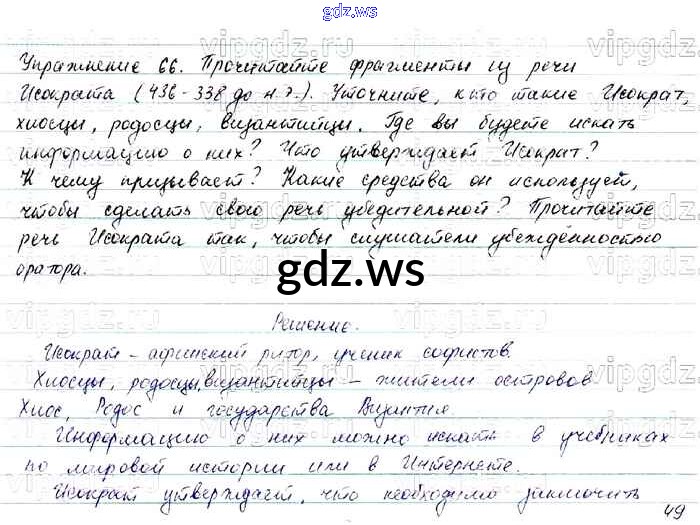 gdz.ws
Упражнение 66. Прочитайте фрагменты из речи
Исократа (436-338 до н.э.). Уточните, кто такие Исократ,
хиосцы, родосцы, византийцы. Где вы будете искать
информацию о них? Что утверждает Исократ?
К чему призывает? Какие средства он использует,
чтобы сделать свою речь убедительной? Прочитайте
речь Исократа так, чтобы слушатели убеждённостью
оратора.
gdz.ws
Решение.
Исократ – афинский ритор, ученик софистов.
Хиосцы, родосцы, византийцы – жители островов
Хиос, Родос и государства Византия.
Информацию о них можно искать в учебниках
по мировой истории или в Интернете.
Исократ утверждает, что необходимо заключить
49